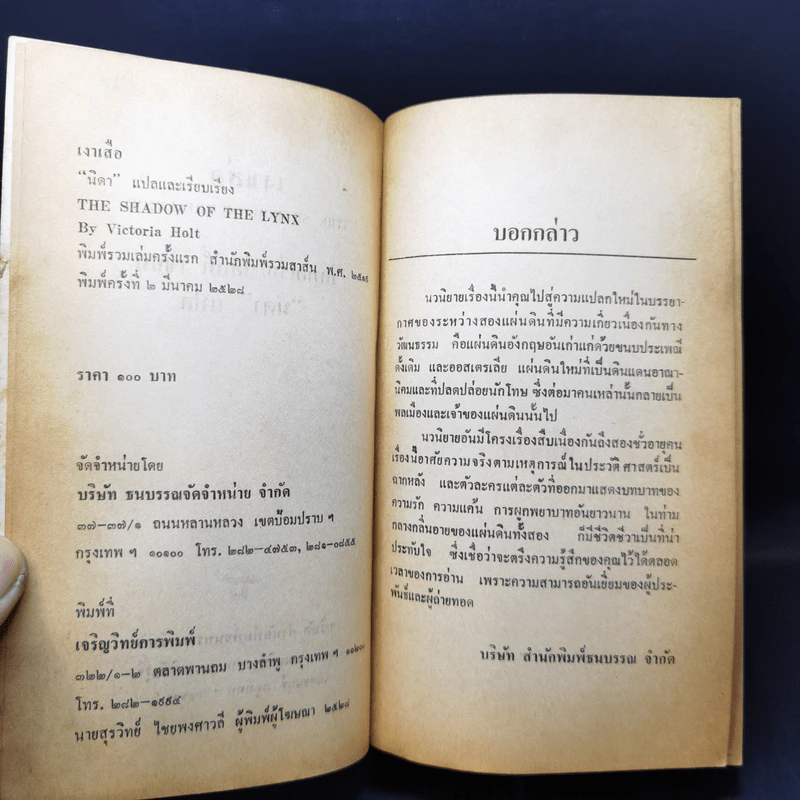 เงาเสือ
“นิดา” แปลและเรียบเรียง
THE SHADOW OF THE LYNX
By Victoria Holt
พิมพ์รวมเล่มครั้งแรก สำนักพิมพ์รวมสาส์น พ.ศ.
พิมพ์ครั้งที่ ๒ มีนาคม ๒๕๒๘
ราคา ๑๐๐ บาท
จัดจำหน่ายโดย
บริษัท ธนบรรณจัดจำหน่าย จำกัด
๓๗-๓๗/๑ ถนนหลานหลวง เขตป้อมปราบ ฯ
กรุงเทพ ฯ ๑๐๑๐๐ โทร. ๒๘๒-๔๗๕๓, ๒๘๑-๐๘๕๕
พิมพ์ที่
เจริญวิทย์การพิมพ์
๓๒๒/๑-๒ ตลาดพานถม บางลำพู กรุงเทพ ฯ
โทร. ๒๘๒-๑๙๙๔
นายสุรวิทย์ ไชยพงศาวลี ผู้พิมพ์ผู้โฆษณา ๒๕๒๘
บอกกล่าว
นวนิยายเรื่องนี้นำคุณไปสู่ความแปลกใหม่ในบรรยา-
กาศของระหว่างสองแผ่นดินที่มีความเกี่ยวเนื่องกันทาง
วัฒนธรรม คือแผ่นดินอังกฤษอันเก่าแก่ด้วยขนบประเพณี
ดั้งเดิม และออสเตรเลีย แผ่นดินใหม่ที่เป็นดินแดนอาณา-
นิคมและที่ปลดปล่อยนักโทษ ซึ่งต่อมาคนเหล่านั้นกลายเป็น
พลเมืองและเจ้าของแผ่นดินนั้นไป
นวนิยายอันมีโครงเรื่องสืบเนื่องกันถึงสองชั่วอายุคน
เรื่องนี้อาศัยความจริงตามเหตุการณ์ในประวัติศาสตร์เป็น
ฉากหลัง และตัวละครแต่ละตัวที่ออกมาแสดงบทบาทของ
ความรัก ความแค้น การผูกพยาบาทอันยาวนาน ในท่าม
กลางกลิ่นอายของแผ่นดินทั้งสอง ก็มีชีวิตชีวาเป็นที่น่า
ประทับใจ ซึ่งเชื่อว่าจะตรึงความรู้สึกของคุณไว้ได้ตลอด
เวลาของการอ่าน เพราะความสามารถอันเยี่ยมของผู้ประ-
พันธ์และผู้ถ่ายทอด
บริษัท สำนักพิมพ์ธนบรรณ จำกัด